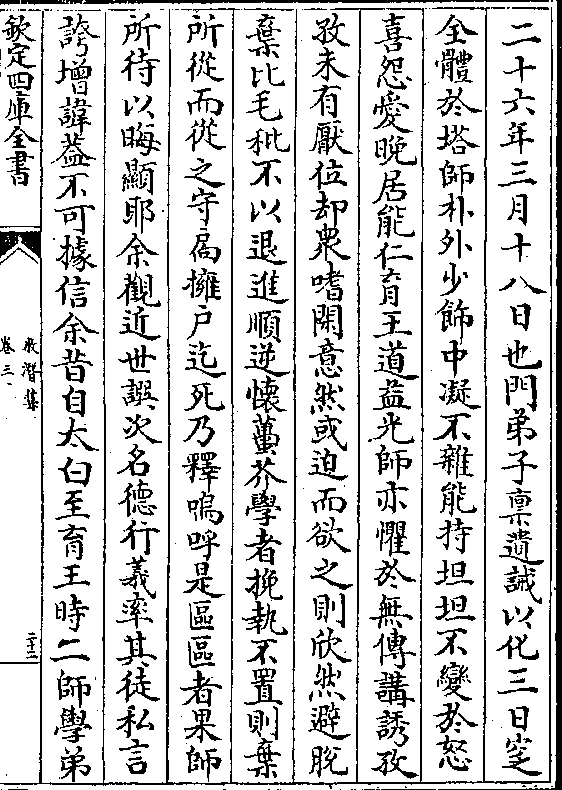 二十六年三月十八日也門弟子稟遺誡以化三日窆
全體於塔師朴外少飾中凝不雜能持坦坦不變於怒
喜怨愛晚居能仁育王道益光師亦懼於無傳講誘孜
孜未有厭位却衆嗜閑意然或迫而欲之則欣然避脫
棄比毛秕不以退進順逆懐蠆芥學者挽執不置則棄
所從而從之守扃擁户迄死乃釋嗚呼是區區者果師
所待以晦顯耶余觀近世譔次名德行義率其徒私言
誇增諱葢不可據信余昔自太白至育王時二師學弟
欽定四庫全書
牧潛集
卷三
二十二